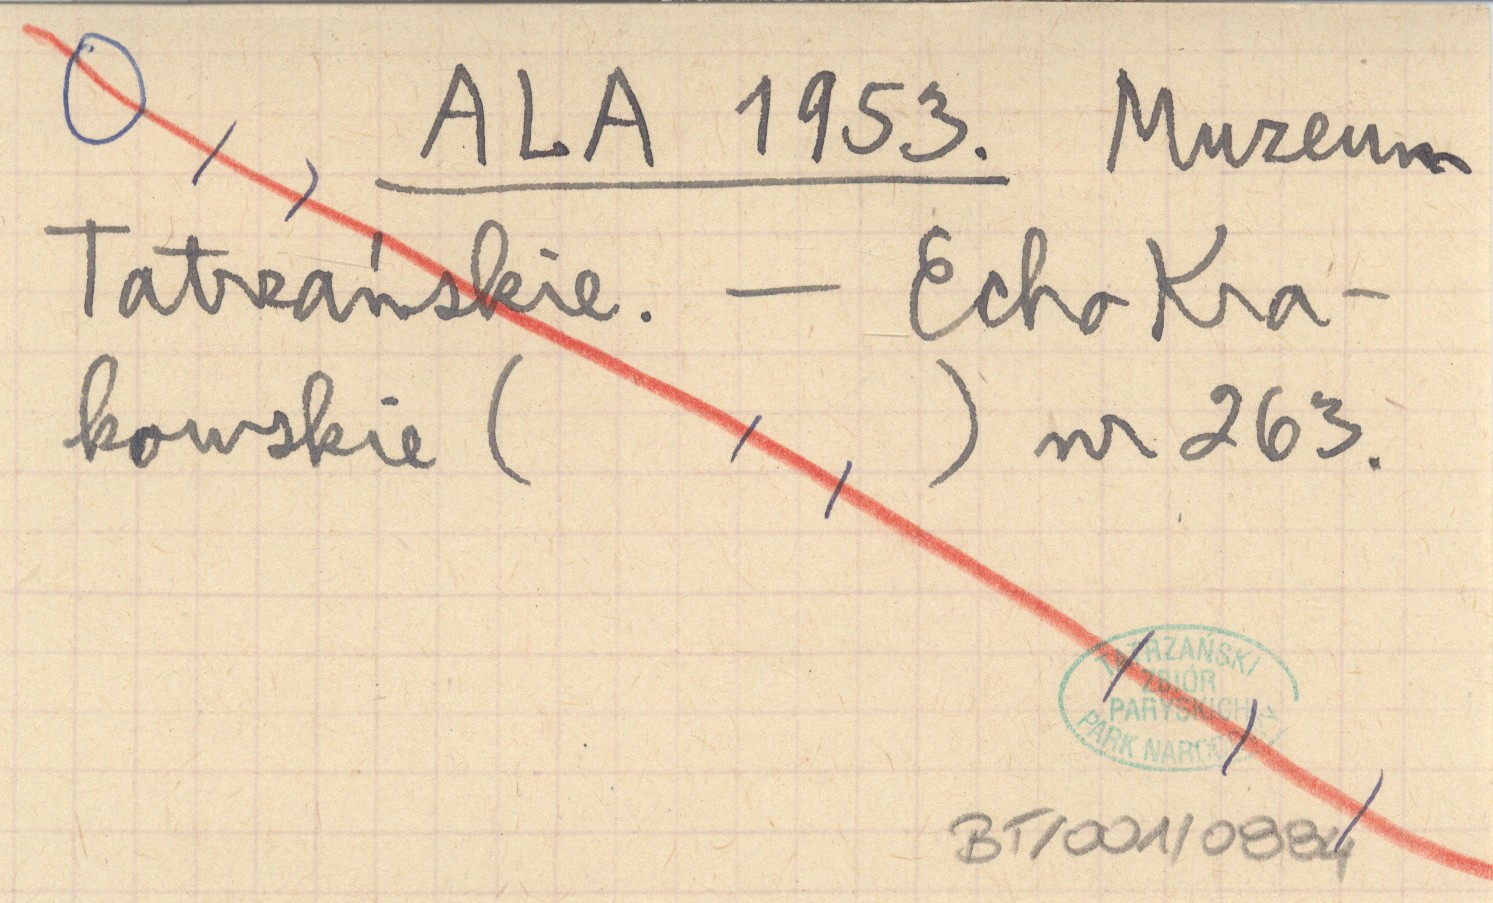 ALA 1953. Muzeum
Tatrzańskie. — Echo Kra-
kowskie ( ) nr 263.
TATRZAŃSKI
ZBIÓR
PARYSKICH
PARK NARODOWY
BT/001/0884